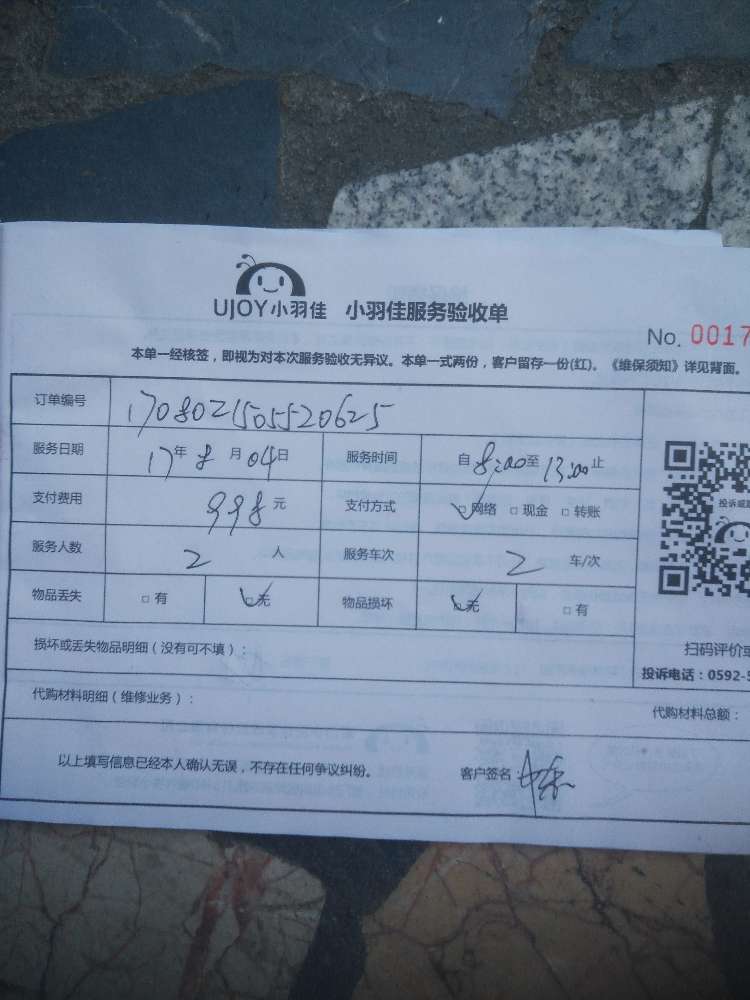 UJOY小羽佳 小羽佳服务验收单
No. 0017
本单一经核签，即视为对本次服务验收无异议。本单一式两份，客户留存一份(红)。《维保须知》详见背面。
订单编号 1708021505520625
服务日期 17年8月04日 服务时间 自8:00至13:00止
支付费用 998元 支付方式 □网络 □现金 □转账
投诉或
服务人数 2人 服务车次 2车/次
物品丢失 □有 □无 物品损坏 □无 □有
损坏或丢失物品明细（没有可不填）：
扫码评价或
投诉电话：0592-5
代购材料明细（维修业务）：
代购材料总额：
以上填写信息已经本人确认无误，不存在任何争议纠纷。 客户签名